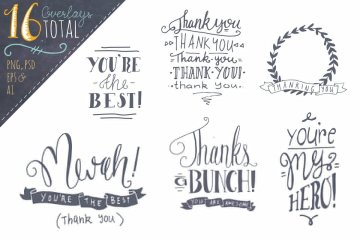 16 Overlays
TOTAL
PNG, PSD
EPS &
AI
YOU'RE
the
BEST!
Thank you
THANK YOU
Thank you
THANK YOU!
thank you.
THANKING YOU
Merah!
YOU'RE THE BEST
(Thank you)
Thanks
a BUNCH!
YOU'RE AWESOME
you're
My
HERO!